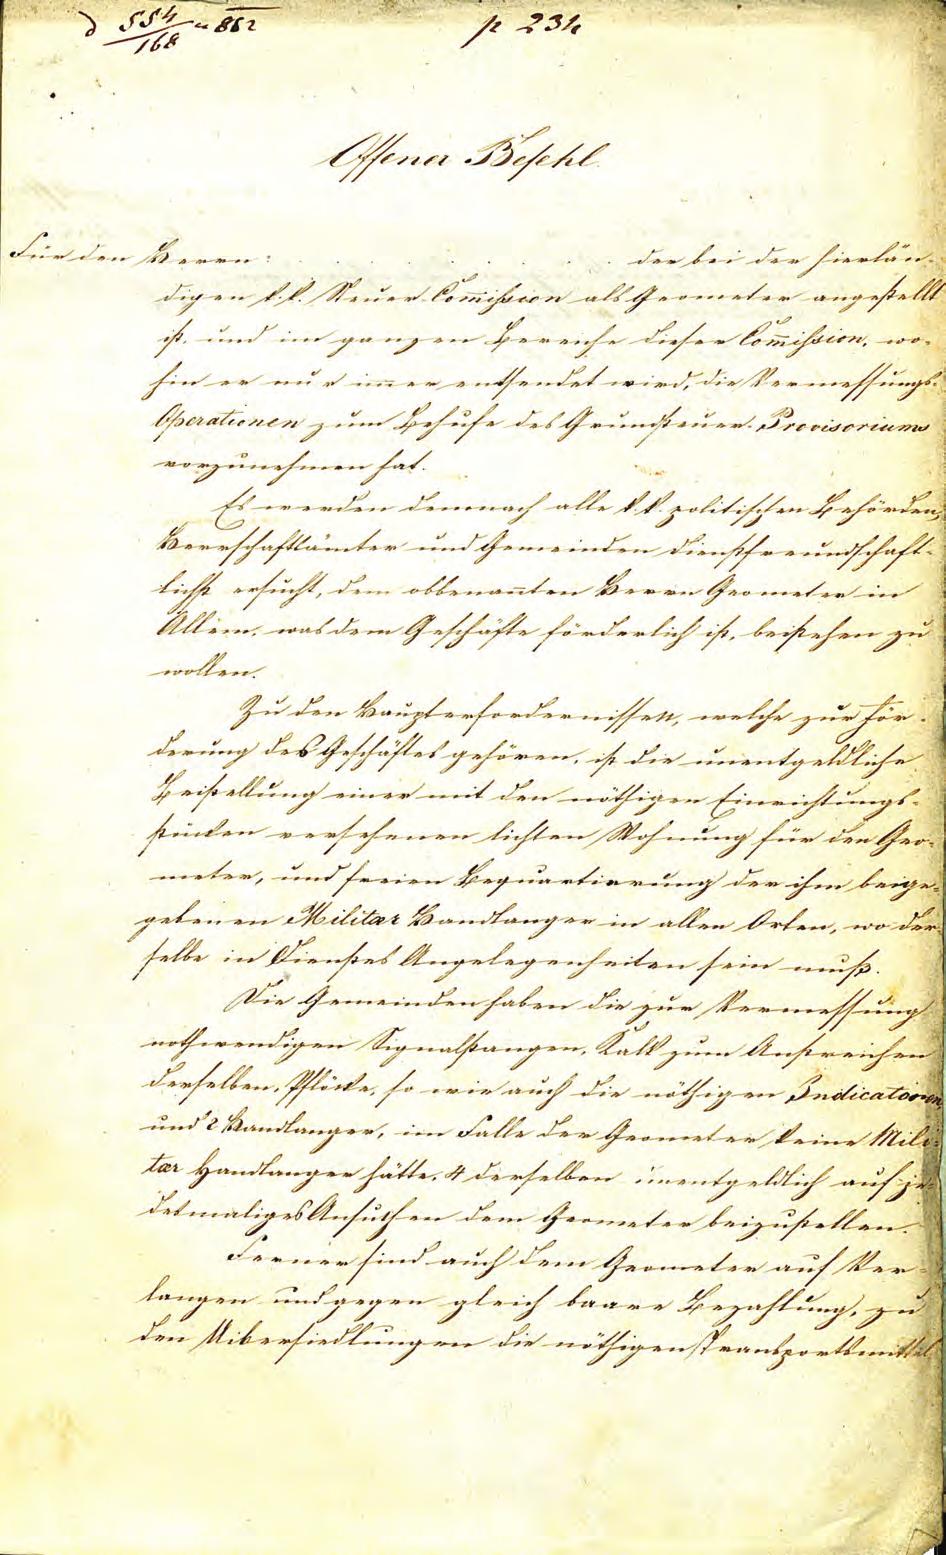 554/168 862 p 234
Offener Befehl.
Für den Herrn: . . . . . . . . . der bei der hierlän-
digen k. k. Steuer Com̄ission als Geometer angestellt
ist, und im ganzen Bereiche dieser Com̄ission, wo-
hin er nur im̄er entsendet wird, die Vermessungs-
Operationen zum Behufe des Grundsteuer-Provisoriums
vorzunehmen hat.
Es werden demnach alle k. k. politischen Behörden,
Herrschaftsämter und Gemeinden dienstfreundschaft-
lichst ersucht, dem obbenan̄ten Herrn Geometer in
Allem, was dem Geschäfte förderlich ist, beistehen zu
wollen.
Zu den Haupterfordernissen, welche zur För-
derung des Geschäftes gehören, ist die unentgeldliche
Beistellung einer mit den nöthigen Einrichtungs-
stücken versehenen lichten Wohnung für den Geo-
meter, und freien Bequartierung der ihm beige-
gebenen Militær Handlanger in allen Orten, wo der-
selbe in Dienstes Angelegenheiten sein muß.
Die Gemeinden haben die zur Vermessung
nothwendigen Signalstangen, Kalk zum Anstreichen
derselben, Pflöcke, so wie auch die nöthigen Indicatoren
und 2 Handlanger, im Falle der Geometer keine Mili-
tær Handlanger hätte, 4 derselben unentgeldlich auf je-
detmaliges Ansuchen dem Geometer beizustellen.
Ferner sind auch dem Geometer auf Ver-
langen und gegen gleich baare Bezahlung, zu
den Uibersiedlungen die nöthigen Transportsmittel